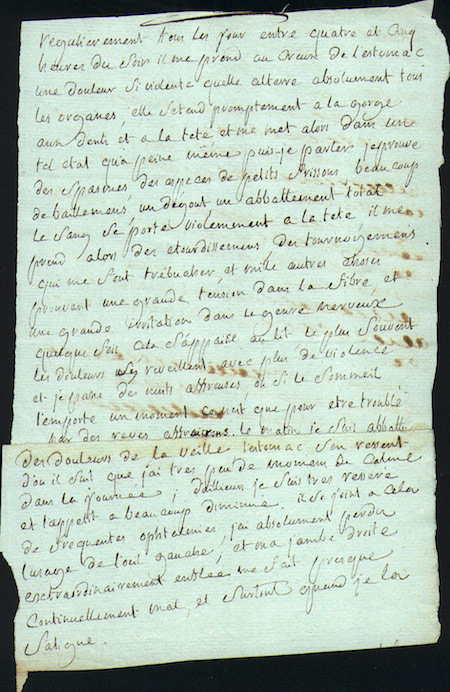 regulierement tous les jour entre quatre et cinq
heures du soir il me prend au creux de l'estomac
une douleur si violente quelle altere absolument tous
les organes elle setend promptement a la gorge
aux dents et a la tete et me met alors dans un
tel etat qu'a peine même puis-je parler jeprouve
des spasmes des especes de petits frissons beaucoup
de baillemens un degout un abbattement total
le sang se porte violemment a la tete il me
prend alors des etourdissemens des tournoyemens
qui me font trébucher, et mille autres choses
prouvant une grande tension dans la fibre et
une grande irritation dans le genre nerveux
quelque fois cela s'appaise au lit le plus souvent
les douleurs s'y reveillent avec plus de violence
et je passe des nuits affreuses, ou si le sommeil
l'emporte un moment ce n'est que pour etre troublé
par des reves affreux. le matin je suis abbattu
des douleurs de la veille l'estomac s'en ressent
d'ou il suit que j'ai tres peu de momens de calme
dans la journée; d'ailleurs je suis tres resserré
et l'appetit a beaucoup diminué. il se joint a cela
de frequentes ophtalmies j'ai absolument perdu
l'usage de l'oeil gauche, et ma jambe droite
extraordinairement enflée me fait presque
continuellement mal, et surtout quand je la
fatigue.